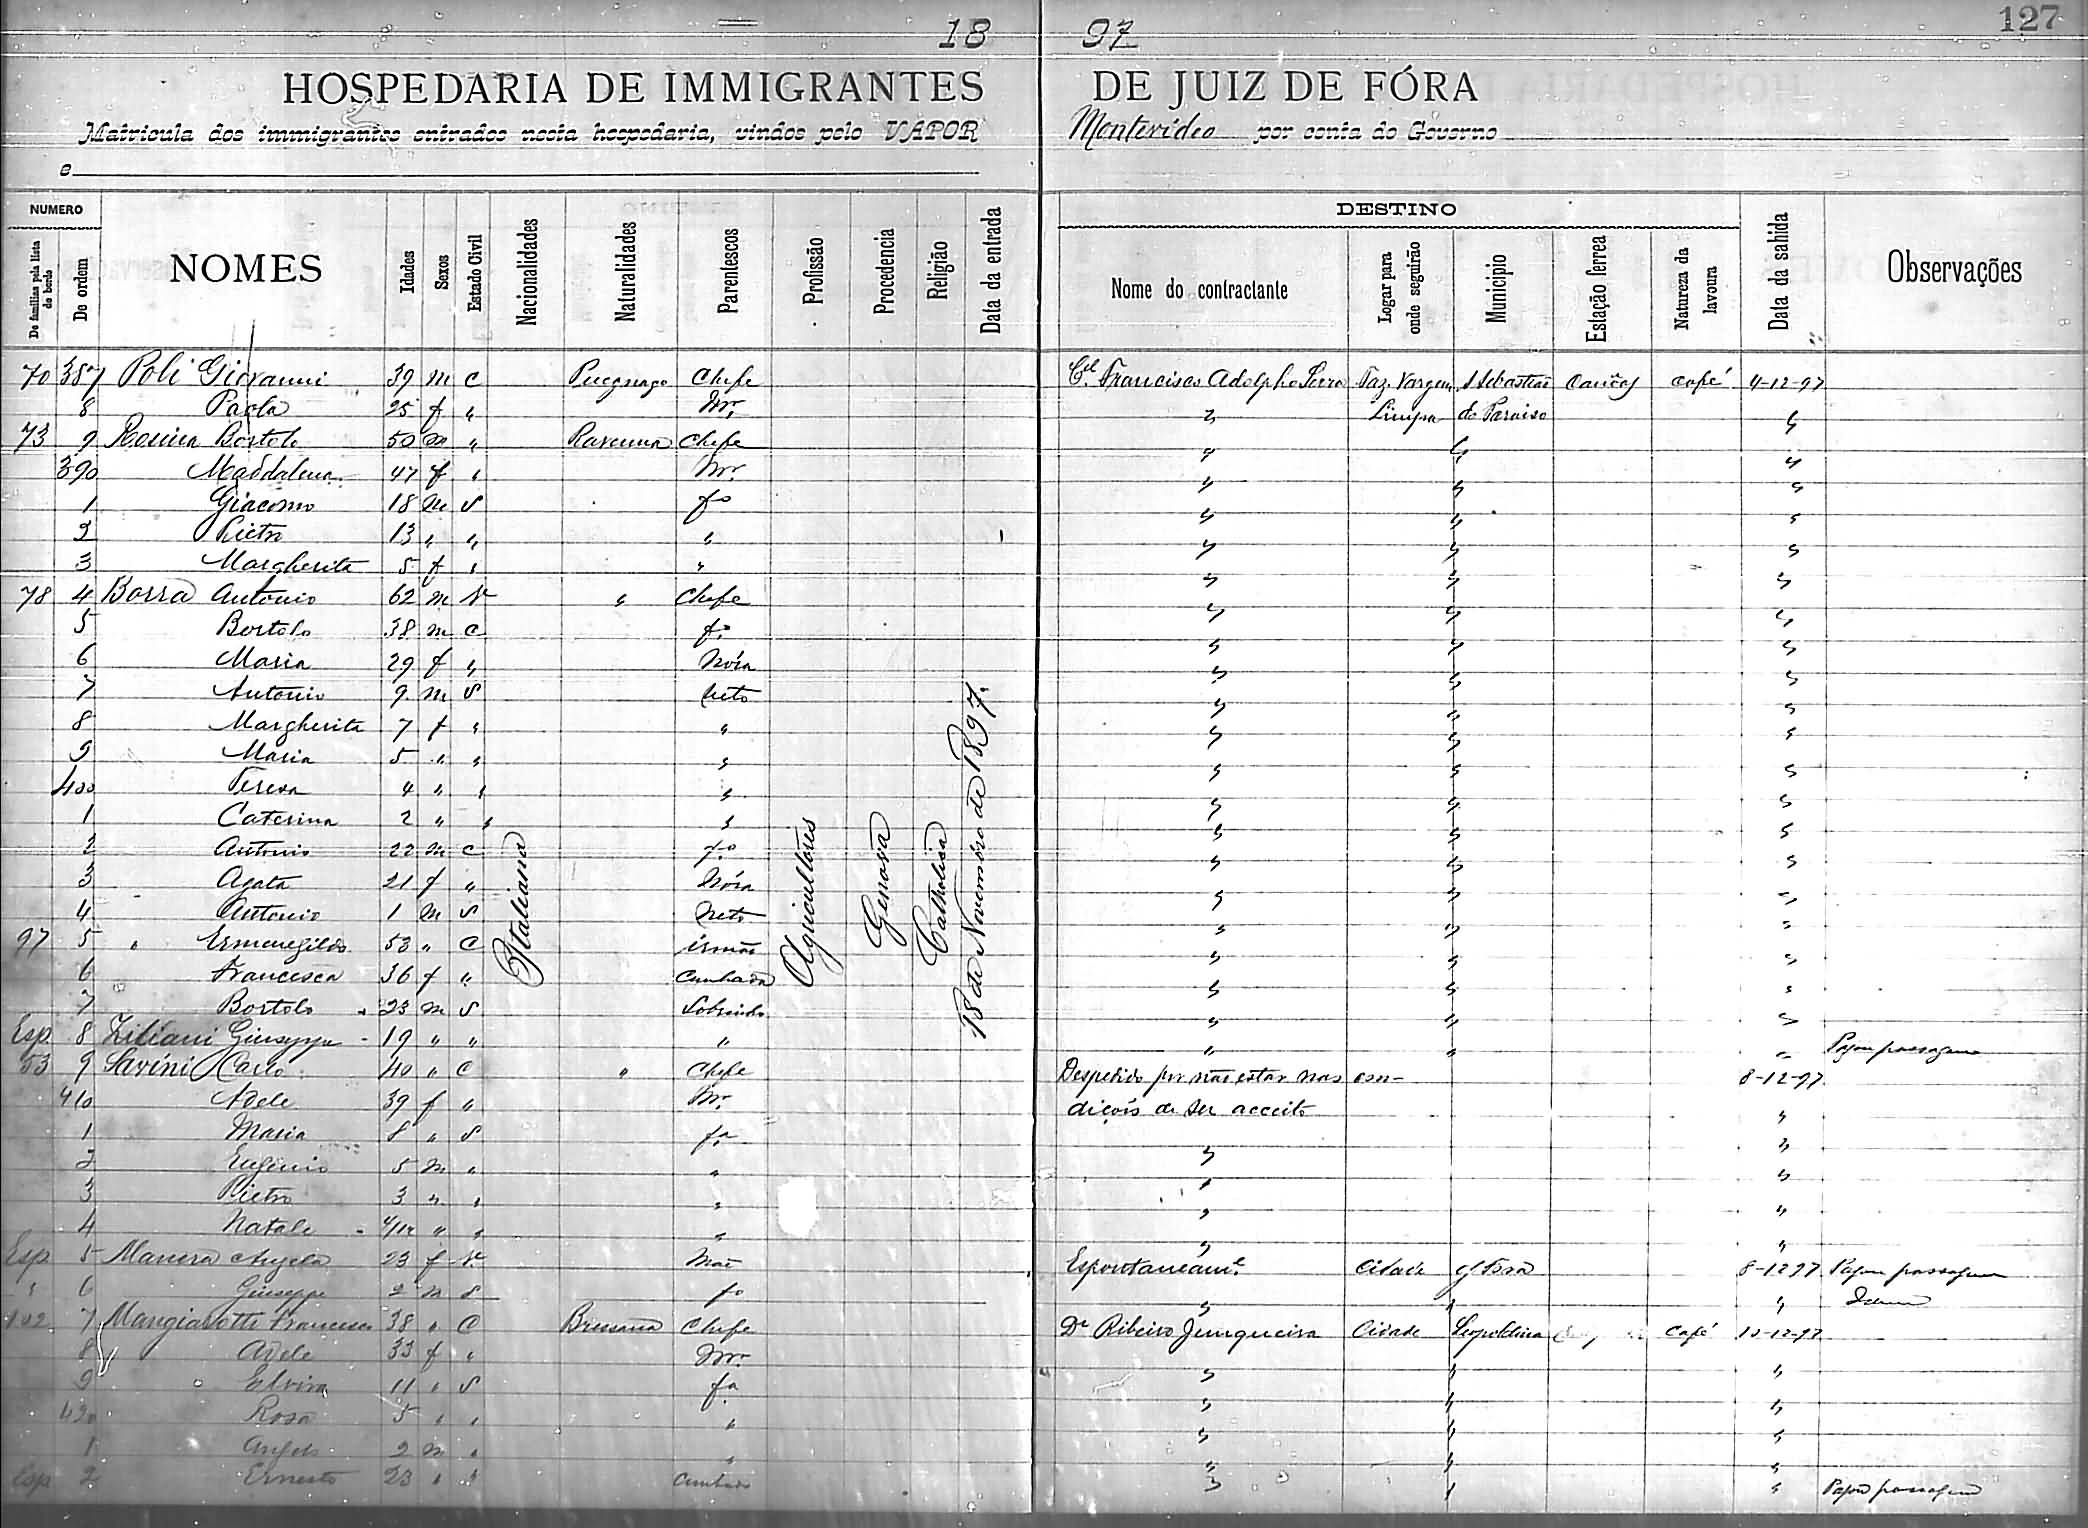 127
18 97
HOSPEDARIA DE IMMIGRANTES DE JUIZ DE FÓRA
Matricula dos immigrantes entrados nesta hospedaria, vindos pelo VAPOR Montevideo por conta do Governo
e
NUMERO DESTINO
De familias pela lista de bordo De ordem NOMES Idades Sexos Estado Civil Nacionalidades Naturalidades Parentescos Profissão Procedencia Religião Data da entrada Nome do contractante Logar para onde seguirão Municipio Estação ferrea Natureza da lavoura Data da sahida Observações
70 387 Poli Giovanni 39 m c Chefe Cel Francisco Adolpho Faz. Vargem S Sebastião café 4-12-97
8 Paola 25 f " Mr. " Limpa do Paraiso "
73 9 Bortolo 50 m " Ravenna Chefe " " "
390 Maddalena 47 f " Mr. " " "
1 Giacomo 18 m S fo " " "
2 Pietro 13 " " " " " "
3 Margherita 5 f " " " " "
78 4 Borra Antonio 62 m V " Chefe " " "
5 Bortolo 38 m C fo " " "
6 Maria 29 f " Nóra " " "
7 Antonio 9 m S Neto " " "
8 Margherita 7 f " " " " "
9 Maria 5 " " " " " "
400 Teresa 4 " " " " " "
1 Caterina 2 " " " " " "
2 Antonio 22 m C fo " " "
3 Agata 21 f " Nóra " " "
4 Antonio 1 m S Neto " " "
97 5 " Ermenegildo 53 " C irmão " " "
6 Francesca 36 f " Cunhada " " "
7 Bortolo 23 m S Sobrinho " " "
Italiana Agricultores Genova Catholica 18 de Novembro de 1897.
Esp. 8 Ziliani Giuseppe 19 " " " " " " Pagou passagem
53 9 Savini Carlo 40 " C " Chefe Despedido por não estar nas con- 8-12-97
410 Adele 39 f " Mr. dições de ser acceito "
1 Maria 8 " S fa " "
2 Eugenio 5 m " " " "
3 Pietro 3 " " " " "
4 Natale " " " " "
Esp. 5 Manera Angela 23 f V Mãe Espontaneamte Cidade 8-12 97 Pagou passagem
" 6 Giuseppe 2 m S fo " " " Idem
102 7 Mangiarotti Francesco 38 " C Chefe Dr Ribeiro Junqueira Cidade Leopoldina café 10-12-97
8 Adele 33 f " Mr. " " "
9 Elvira 11 " S fa " " "
420 Rosa 5 " " " " " "
1 Angelo 2 m " " " " "
Esp 2 Ernesto 23 " " Cunhado " " " Pagou passagem